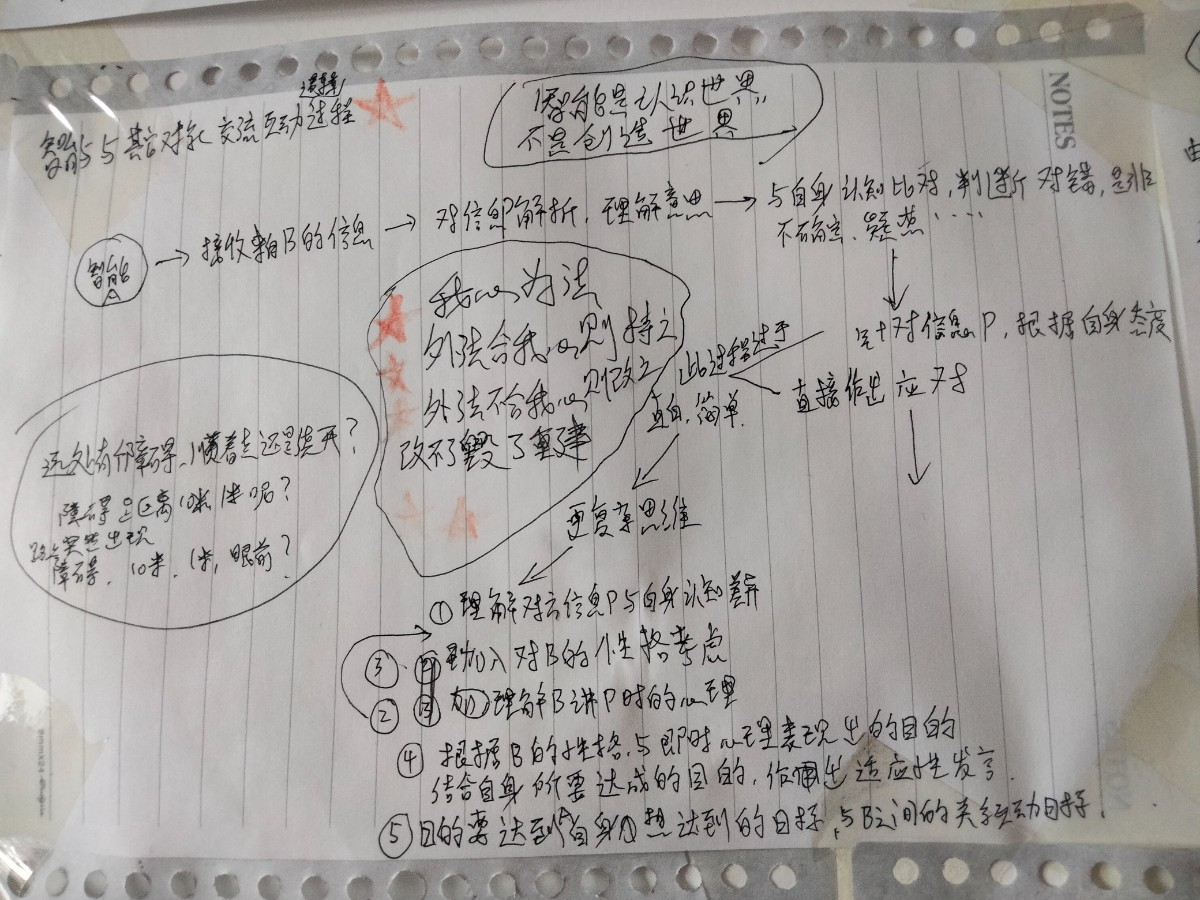 智能与其它对象交流互动过程
智能是认识世界,
不是创造世界
NOTES
智能
A
接收来自B的信息
对信息解析,理解意思
与自身认知比对,判断对错,是非
不确定、疑惑....
针对信息P,根据自身态度
直接作出应对
此过程过于
直白,简单.
我心为法
外法合我心则持之
外法不合我心则改之
改不了毁了重建
远处有个障碍、顺着走还是绕开?
障碍 距离10米1米呢?
突然出现
障碍,10米,1米,眼前?
更复杂思维
① 理解对方信息P与自身认知差异
③ 加入对B的性格考虑
② 理解B讲P时的心理
④ 根据B的性格,与即时心理表现出的目的
结合自身所要达成的目的,作出适应性发言.
⑤ 目的要达到自身A想达到的目标,与B之间的关系互动目标.